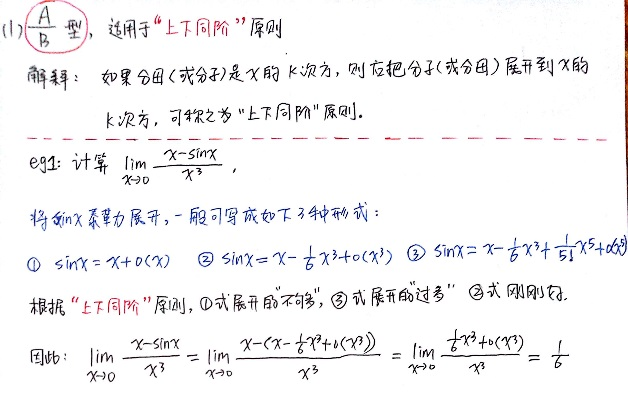 (1) A/B 型，适用于“上下同阶”原则
解释：如果分母(或分子)是x的k次方，则应把分子(或分母)展开到x的
k次方，可称之为“上下同阶”原则。
eg1: 计算 lim x→0 (x-sinx)/x³ ，
将sinx泰勒展开，一般可写成如下3种形式：
① sinx = x+o(x) ② sinx = x - 1/6 x³+o(x³) ③ sinx = x - 1/6 x³ + 1/5! x⁵ + o(x⁵)
根据“上下同阶”原则，①式展开的“不够”，③式展开的“过多” ②式刚刚好.
因此: lim x→0 (x-sinx)/x³ = lim x→0 (x-(x-1/6 x³+o(x³)))/x³ = lim x→0 (1/6 x³+o(x³))/x³ = 1/6